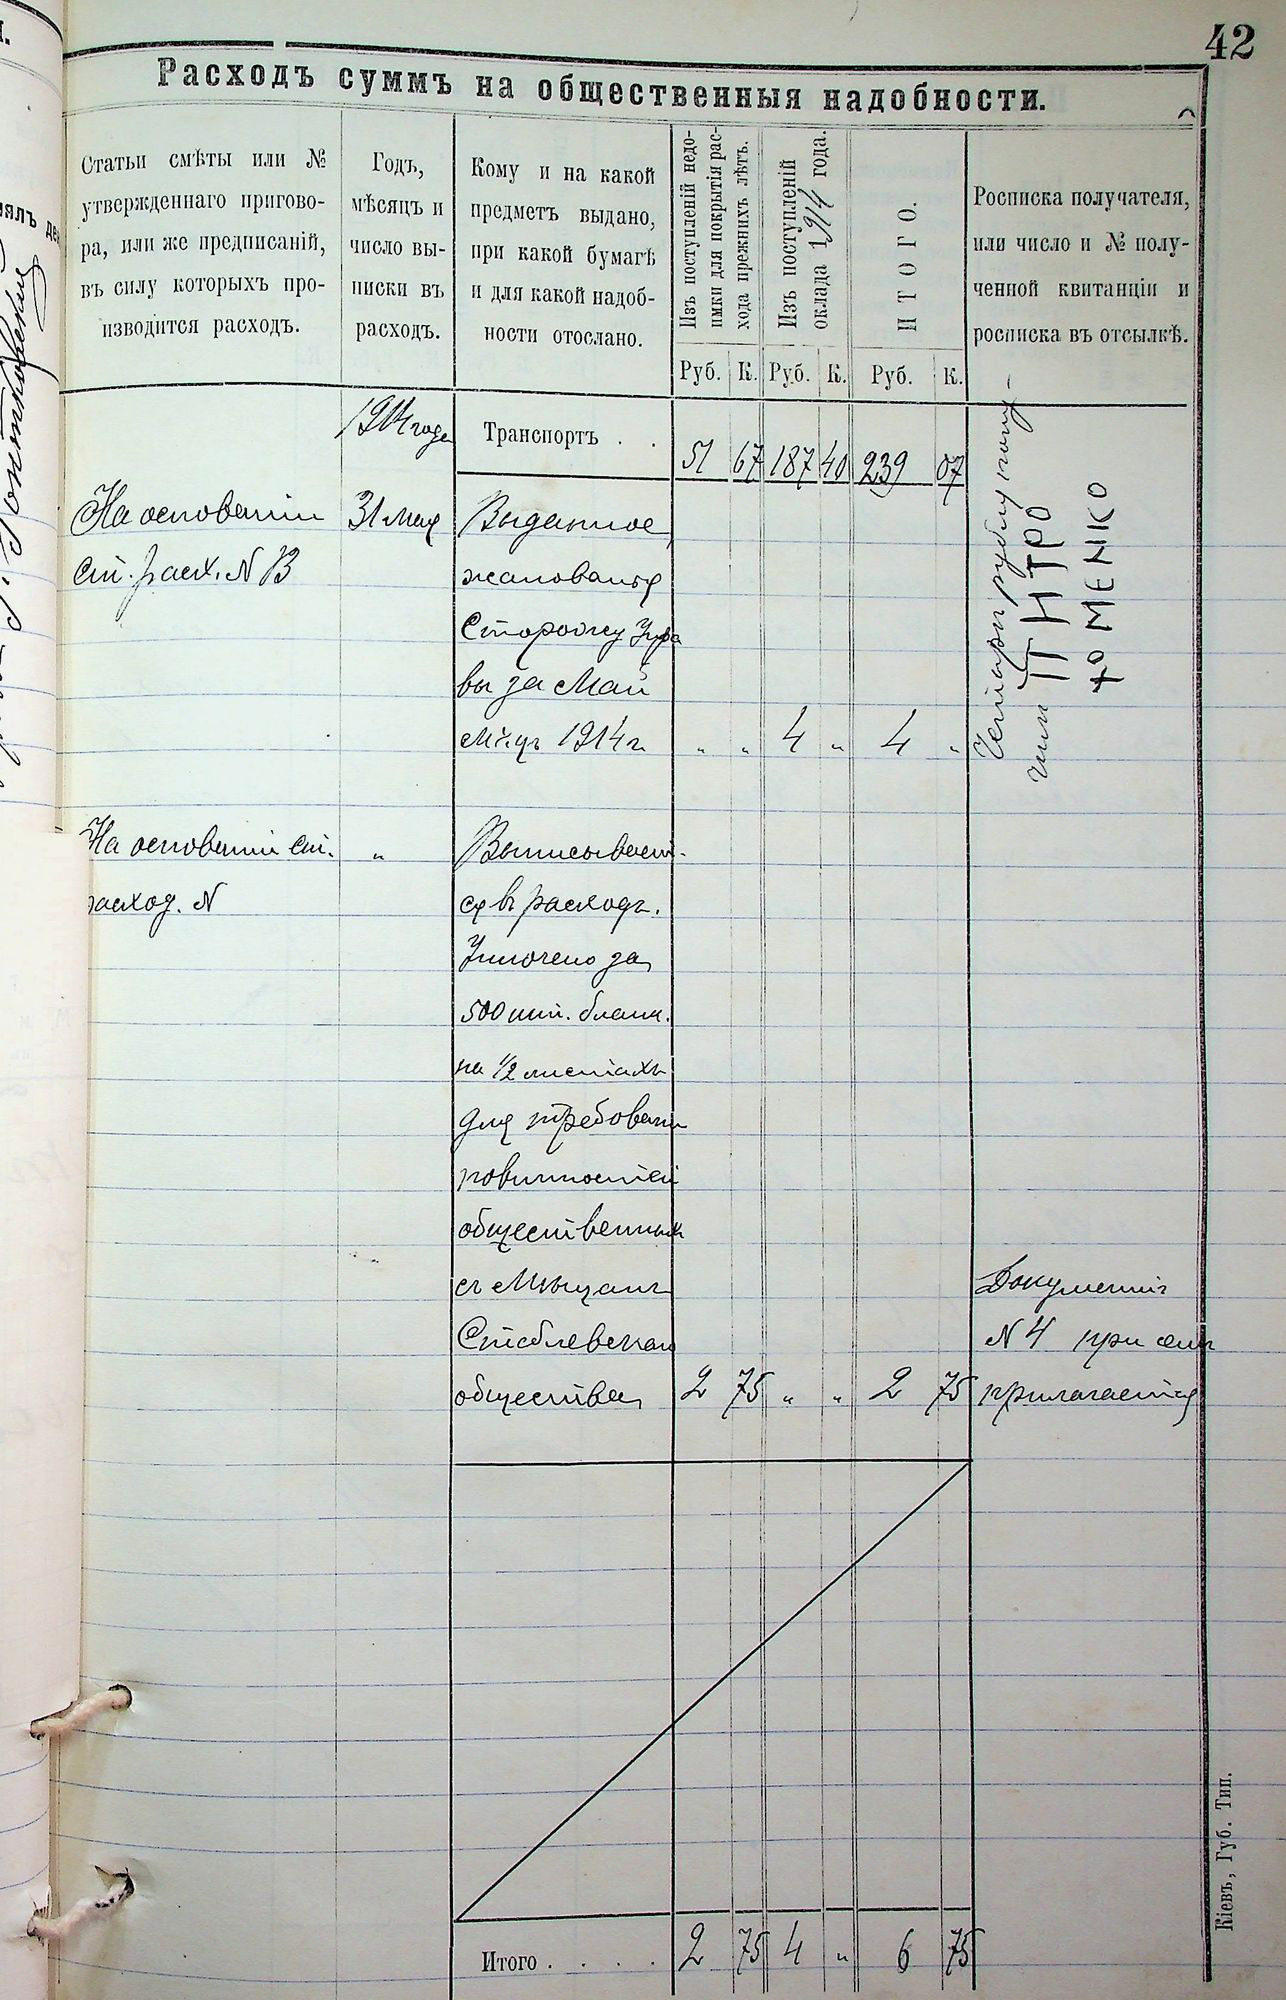 42
Расходъ суммъ на общественныя надобности.
Статьи смѣты или №
утвержденнаго пригово-
ра, или же предписаній,
въ силу которыхъ про-
изводится расходъ.
Годъ,
мѣсяцъ и
число вы-
писки въ
расходъ.
Кому и на какой
предметъ выдано,
при какой бумагѣ
и для какой надоб-
ности отослано.
Изъ поступленій недо-
имки для покрытія рас-
хода прежнихъ лѣтъ.
Изъ поступленій
оклада 1914 года.
ИТОГО.
Росписка получателя,
или число и № полу-
ченной квитанціи и
росписка въ отсылкѣ.
Руб. К. Руб. К. Руб. К.
1914 года Транспортъ . . 51 67 187 40 239 07
На основаніи 31 Мая Выданное
ст. расх. N 13 жалованья
Сторожу Упра
вы за Май
М-цъ 1914 г. " " 4 " 4 "
Четыри рубли полу-
чил ПИТРО
ХОМЕНКО
На основаніи ст. " Выписывает-
расход. N ся въ расходъ.
Уплочено за
500 шт. бланк.
на 1/2 листахъ
для требовани
повинностей
общественных
съ Мѣщанъ
Стеблевскаго
общества 2 75 " " 2 75
Документъ
N 4 при семъ
прилагается
Итого . . . . 2 75 4 " 6 75
Кіевъ, Губ. Тип.